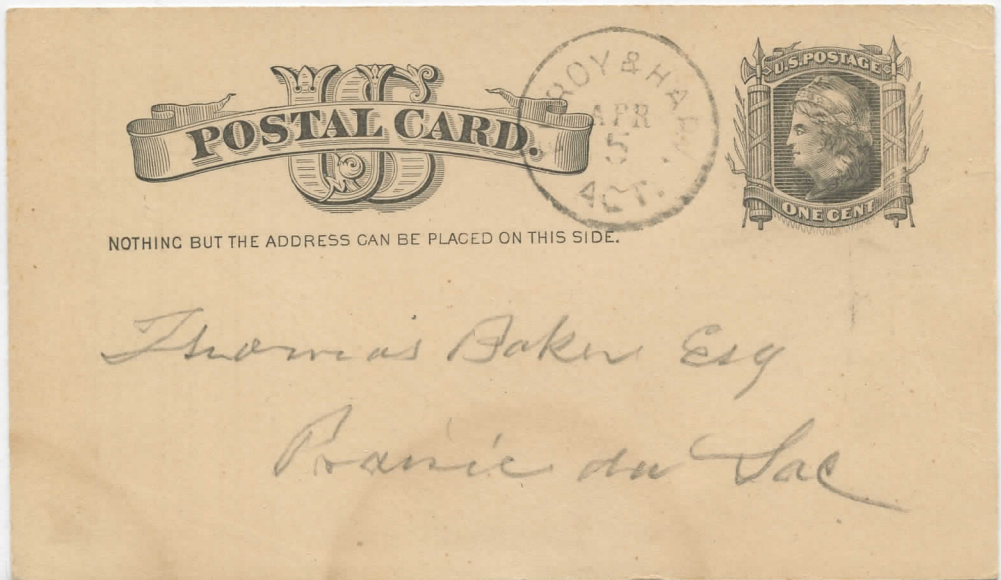 US
POSTAL CARD.
ROY & HAR
APR
5
ACT.
U.S. POSTAGE
ONE CENT
NOTHING BUT THE ADDRESS CAN BE PLACED ON THIS SIDE.
Thomas Baker Esq
Prairie du Sac